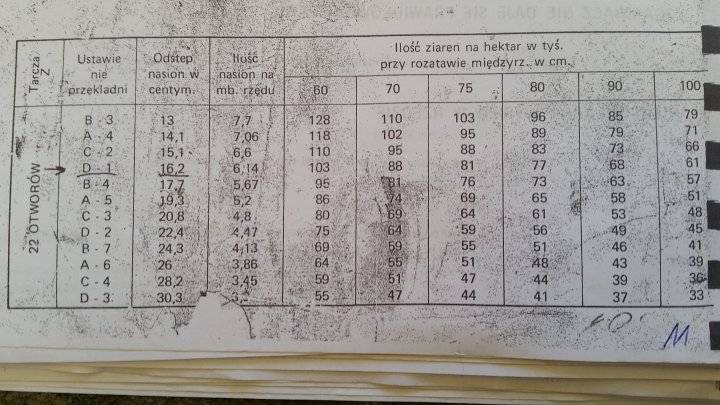 Tarcza Z
Ustawie nie przekladni
Odstęp nasion w centym.
Ilość nasion na mb. rzędu
Ilość ziaren na hektar w tyś.
przy rozatawie międzyrz. w cm.
60 70 75 80 90 100
22 OTWORÓW
B - 3 13 7,7 128 110 103 96 85 79
A - 4 14,1 7,06 118 102 95 89 79 71
C - 2 15,1 6,6 110 95 88 83 73 66
D - 1 16,2 6,14 103 88 81 77 68 61
B - 4 17,7 5,67 95 81 76 73 63 57
A - 5 19,3 5,2 86 74 69 65 58 51
C - 3 20,8 4,8 80 69 64 61 53 48
D - 2 22,4 4,47 75 64 59 56 49 45
B - 7 24,3 4,13 69 59 55 51 46 41
A - 6 26 3,86 64 55 51 48 43 39
C - 4 28,2 3,45 59 51 47 44 39 36
D - 3 30,3 55 47 44 41 37 33